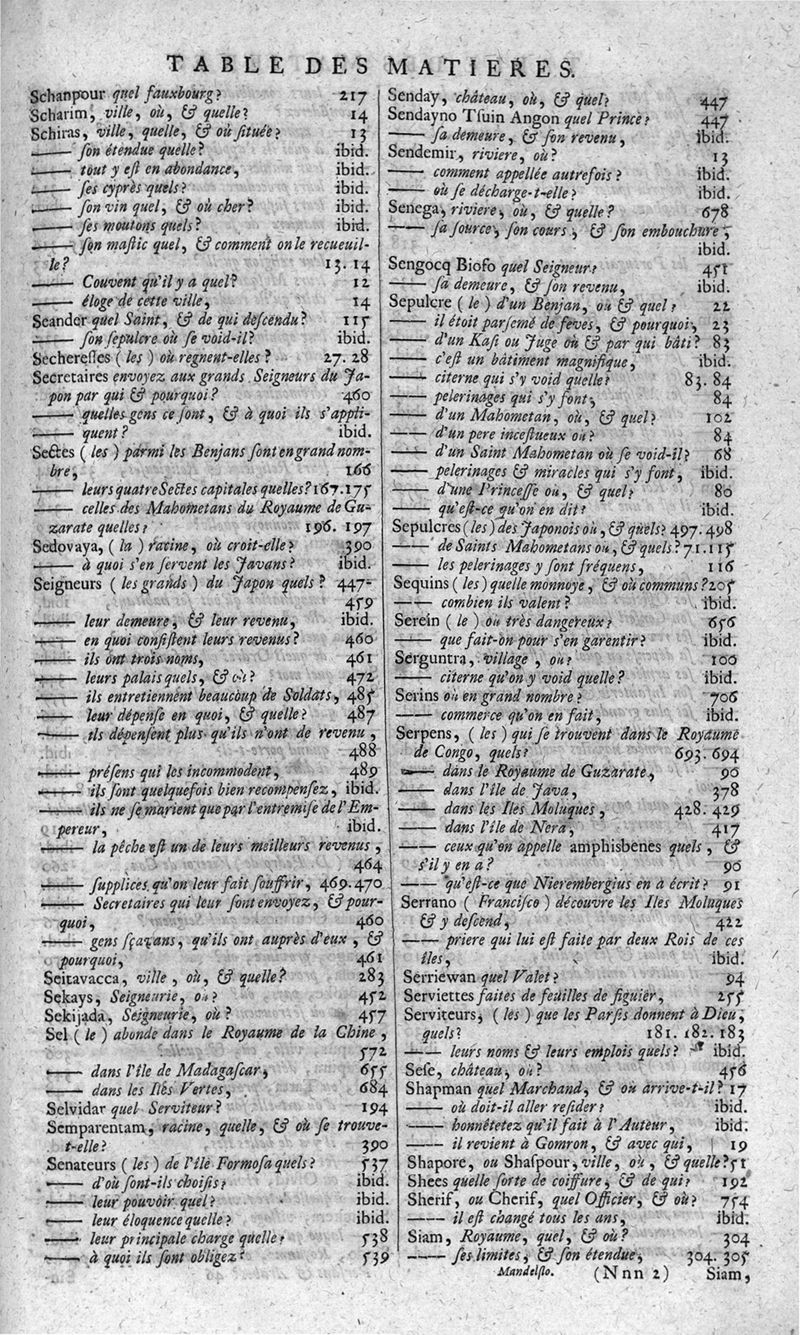 TABLE DES MATIERES.
Schanpour quel fauxbourg? 217
Scharim, ville, où, & quelle? 14
Schiras, ville, quelle, & où située? 13
—— son étendue quelle? ibid.
—— tout y est en abondance, ibid.
—— ses cyprès quels? ibid.
—— son vin quel, & où cher? ibid.
—— ses moutons quels? ibid.
—— son mastic quel, & comment on le recueil-
le? 13. 14
—— Couvent qu'il y a quel? 12
—— éloge de cette ville, 14
Scander quel Saint, & de qui descendu? 115
—— son sepulcre où se void-il? ibid.
Secheresses (les) où regnent-elles? 27. 28
Secretaires envoyez aux grands Seigneurs du Ja-
pon par qui & pourquoi? 460
—— quelles gens ce sont, & à quoi ils s'appli-
—— quent? ibid.
Sectes (les) parmi les Benjans sont en grand nom-
bre, 166
—— leurs quatre Sectes capitales quelles? 167. 175
—— celles des Mahometans du Royaume de Gu-
zarate quelles? 196. 197
Sedovaya, (la) racine, où croit-elle? 390
—— à quoi s'en servent les Javans? ibid.
Seigneurs (les grands) du Japon quels? 447-
459
—— leur demeure, & leur revenu, ibid.
—— en quoi consistent leurs revenus? 460
—— ils ont trois noms, 461
—— leurs palais quels, & où? 472
—— ils entretiennent beaucoup de Soldats, 485
—— leur dépense en quoi, & quelle? 487
—— ils dépensent plus qu'ils n'ont de revenu,
488
—— présens qui les incommodent, 489
—— ils sont quelquefois bien recompensez, ibid.
—— ils ne se marient que par l'entremise de l'Em-
pereur, ibid.
—— la pêche est un de leurs meilleurs revenus,
464
—— supplices qu'on leur fait souffrir, 469. 470
—— Secretaires qui leur sont envoyez, & pour-
quoi, 460
—— gens sçavans, qu'ils ont auprès d'eux, &
pourquoi, 461
Seitavacca, ville, où, & quelle? 283
Sekays, Seigneurie, où? 452
Sekijada, Seigneurie, où? 457
Sel (le) abonde dans le Royaume de la Chine,
572
—— dans l'île de Madagascar, 655
—— dans les Iles Vertes, 684
Selvidar quel Serviteur? 194
Semparentam, racine, quelle, & où se trouve-
t-elle? 390
Senateurs (les) de l'île Formosa quels? 537
—— d'où sont-ils choisis? ibid.
—— leur pouvoir quel? ibid.
—— leur éloquence quelle? ibid.
—— leur principale charge quelle? 538
—— à quoi ils sont obligez? 539
Senday, château, où, & quel? 447
Sendayno Tsuin Angon quel Prince? 447
—— sa demeure, & son revenu, ibid.
Sendemir, riviere, où? 13
—— comment appellée autrefois? ibid.
—— où se décharge-t-elle? ibid.
Senega, riviere, où, & quelle? 678
—— sa source, son cours, & son embouchure,
ibid.
Sengocq Bioso quel Seigneur? 451
—— sa demeure, & son revenu, ibid.
Sepulcre (le) d'un Benjan, où & quel? 22
—— il étoit parsemé de feves, & pourquoi, 23
—— d'un Kasi ou Juge où & par qui bâti? 83
—— c'est un bâtiment magnifique, ibid.
—— citerne qui s'y void quelle? 83. 84
—— pelerinages qui s'y font, 84
—— d'un Mahometan, où, & quel? 102
—— d'un pere incestueux où? 84
—— d'un Saint Mahometan où se void-il? 68
—— pelerinages & miracles qui s'y font, ibid.
—— d'une Princesse où, & quel? 80
—— qu'est-ce qu'on en dit? ibid.
Sepulcres (les) des Japonois où, & quels? 497. 498
—— de Saints Mahometans où, & quels? 71. 115
—— les pelerinages y sont fréquens, 116
Sequins (les) quelle monnoye, & où communs? 205
—— combien ils valent? ibid.
Serein (le) où très dangereux? 656
—— que fait-on pour s'en garentir? ibid.
Serguntra, village, où? 100
—— citerne qu'on y void quelle? ibid.
Serins où en grand nombre? 706
—— commerce qu'on en fait, ibid.
Serpens, (les) qui se trouvent dans le Royaume
de Congo, quels? 693. 694
—— dans le Royaume de Guzarate, 90
—— dans l'île de Java, 378
—— dans les Iles Moluques, 428. 429
—— dans l'île de Nera, 417
—— ceux qu'on appelle amphisbenes quels, &
s'il y en a? 90
—— qu'est-ce que Nierembergius en a écrit? 91
Serrano (Francisco) découvre les Iles Moluques
& y descend, 422
—— priere qui lui est faite par deux Rois de ces
îles, ibid.
Serriewan quel Valet? 94
Serviettes faites de feuilles de figuier, 255
Serviteurs, (les) que les Parsis donnent à Dieu,
quels? 181. 182. 183
—— leurs noms & leurs emplois quels? ibid.
Sese, château, où? 456
Shapman quel Marchand, & où arrive-t-il? 17
—— où doit-il aller resider? ibid.
—— honnêtetez qu'il fait à l'Auteur, ibid.
—— il revient à Gomron, & avec qui, 19
Shapore, ou Shaspour, ville, où, & quelle? 51
Shees quelle sorte de coiffure, & de qui? 192
Sherif, ou Cherif, quel Officier, & où? 754
—— il est changé tous les ans, ibid.
Siam, Royaume, quel, & où? 304
—— ses limites, & son étendue, 304. 305
Mandelslo. (Nnn 2) Siam,